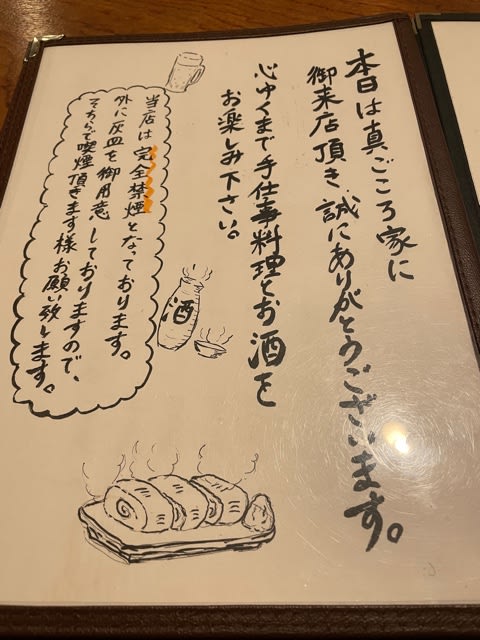 本日は真ごころ家に
御来店頂き、誠にありがとうございます。
心ゆくまで手仕事料理とお酒を
お楽しみ下さい。
酒
当店は完全禁煙となっております。
外に灰皿を御用意しておりますので、
そちらで喫煙頂きます様お願い致します。